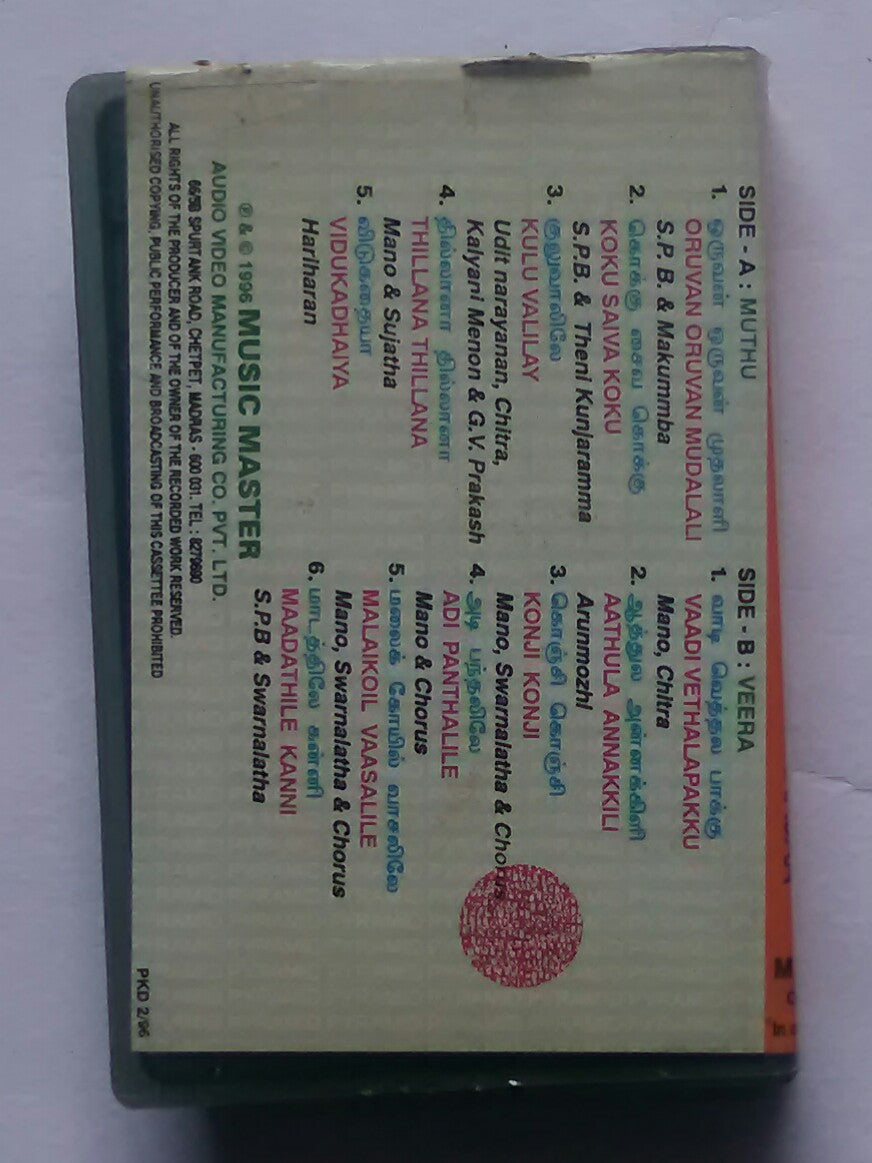 SIDE - A : MUTHU
1. ஒருவன் ஒருவன் முதலாளி
ORUVAN ORUVAN MUDALALI
S.P.B. & Makummba
2. கொக்கு சைவ கொக்கு
KOKU SAIVA KOKU
S.P.B. & Theni Kunjaramma
3. குலுவாலிலே
KULU VALILAY
Udit narayanan, Chitra,
Kalyani Menon & G.V. Prakash
4. தில்லானா தில்லானா
THILLANA THILLANA
Mano & Sujatha
5. விடுகதையா
VIDUKADHAIYA
Hariharan
SIDE - B : VEERA
1. வாடி வெத்தல பாக்கு
VAADI VETHALAPAKKU
Mano, Chitra
2. ஆத்துல அன்னக்கிளி
AATHULA ANNAKKILI
Arunmozhi
3. கொஞ்சி கொஞ்சி
KONJI KONJI
Mano, Swarnalatha & Chorus
4. அடி பந்தலிலே
ADI PANTHALILE
Mano & Chorus
5. மலைக் கோயில் வாசலிலே
MALAIKOIL VAASALILE
Mano, Swarnalatha & Chorus
6. மாடத்திலே கன்னி
MAADATHILE KANNI
S.P.B & Swarnalatha
℗ & © 1996 MUSIC MASTER
AUDIO VIDEO MANUFACTURING CO. PVT. LTD.
665B SPURTANK ROAD, CHETPET, MADRAS - 600 031. TEL : 8270690
ALL RIGHTS OF THE PRODUCER AND OF THE OWNER OF THE RECORDED WORK RESERVED.
UNAUTHORISED COPYING, PUBLIC PERFORMANCE AND BROADCASTING OF THIS CASSETTEE PROHIBITED
PKD 2/96